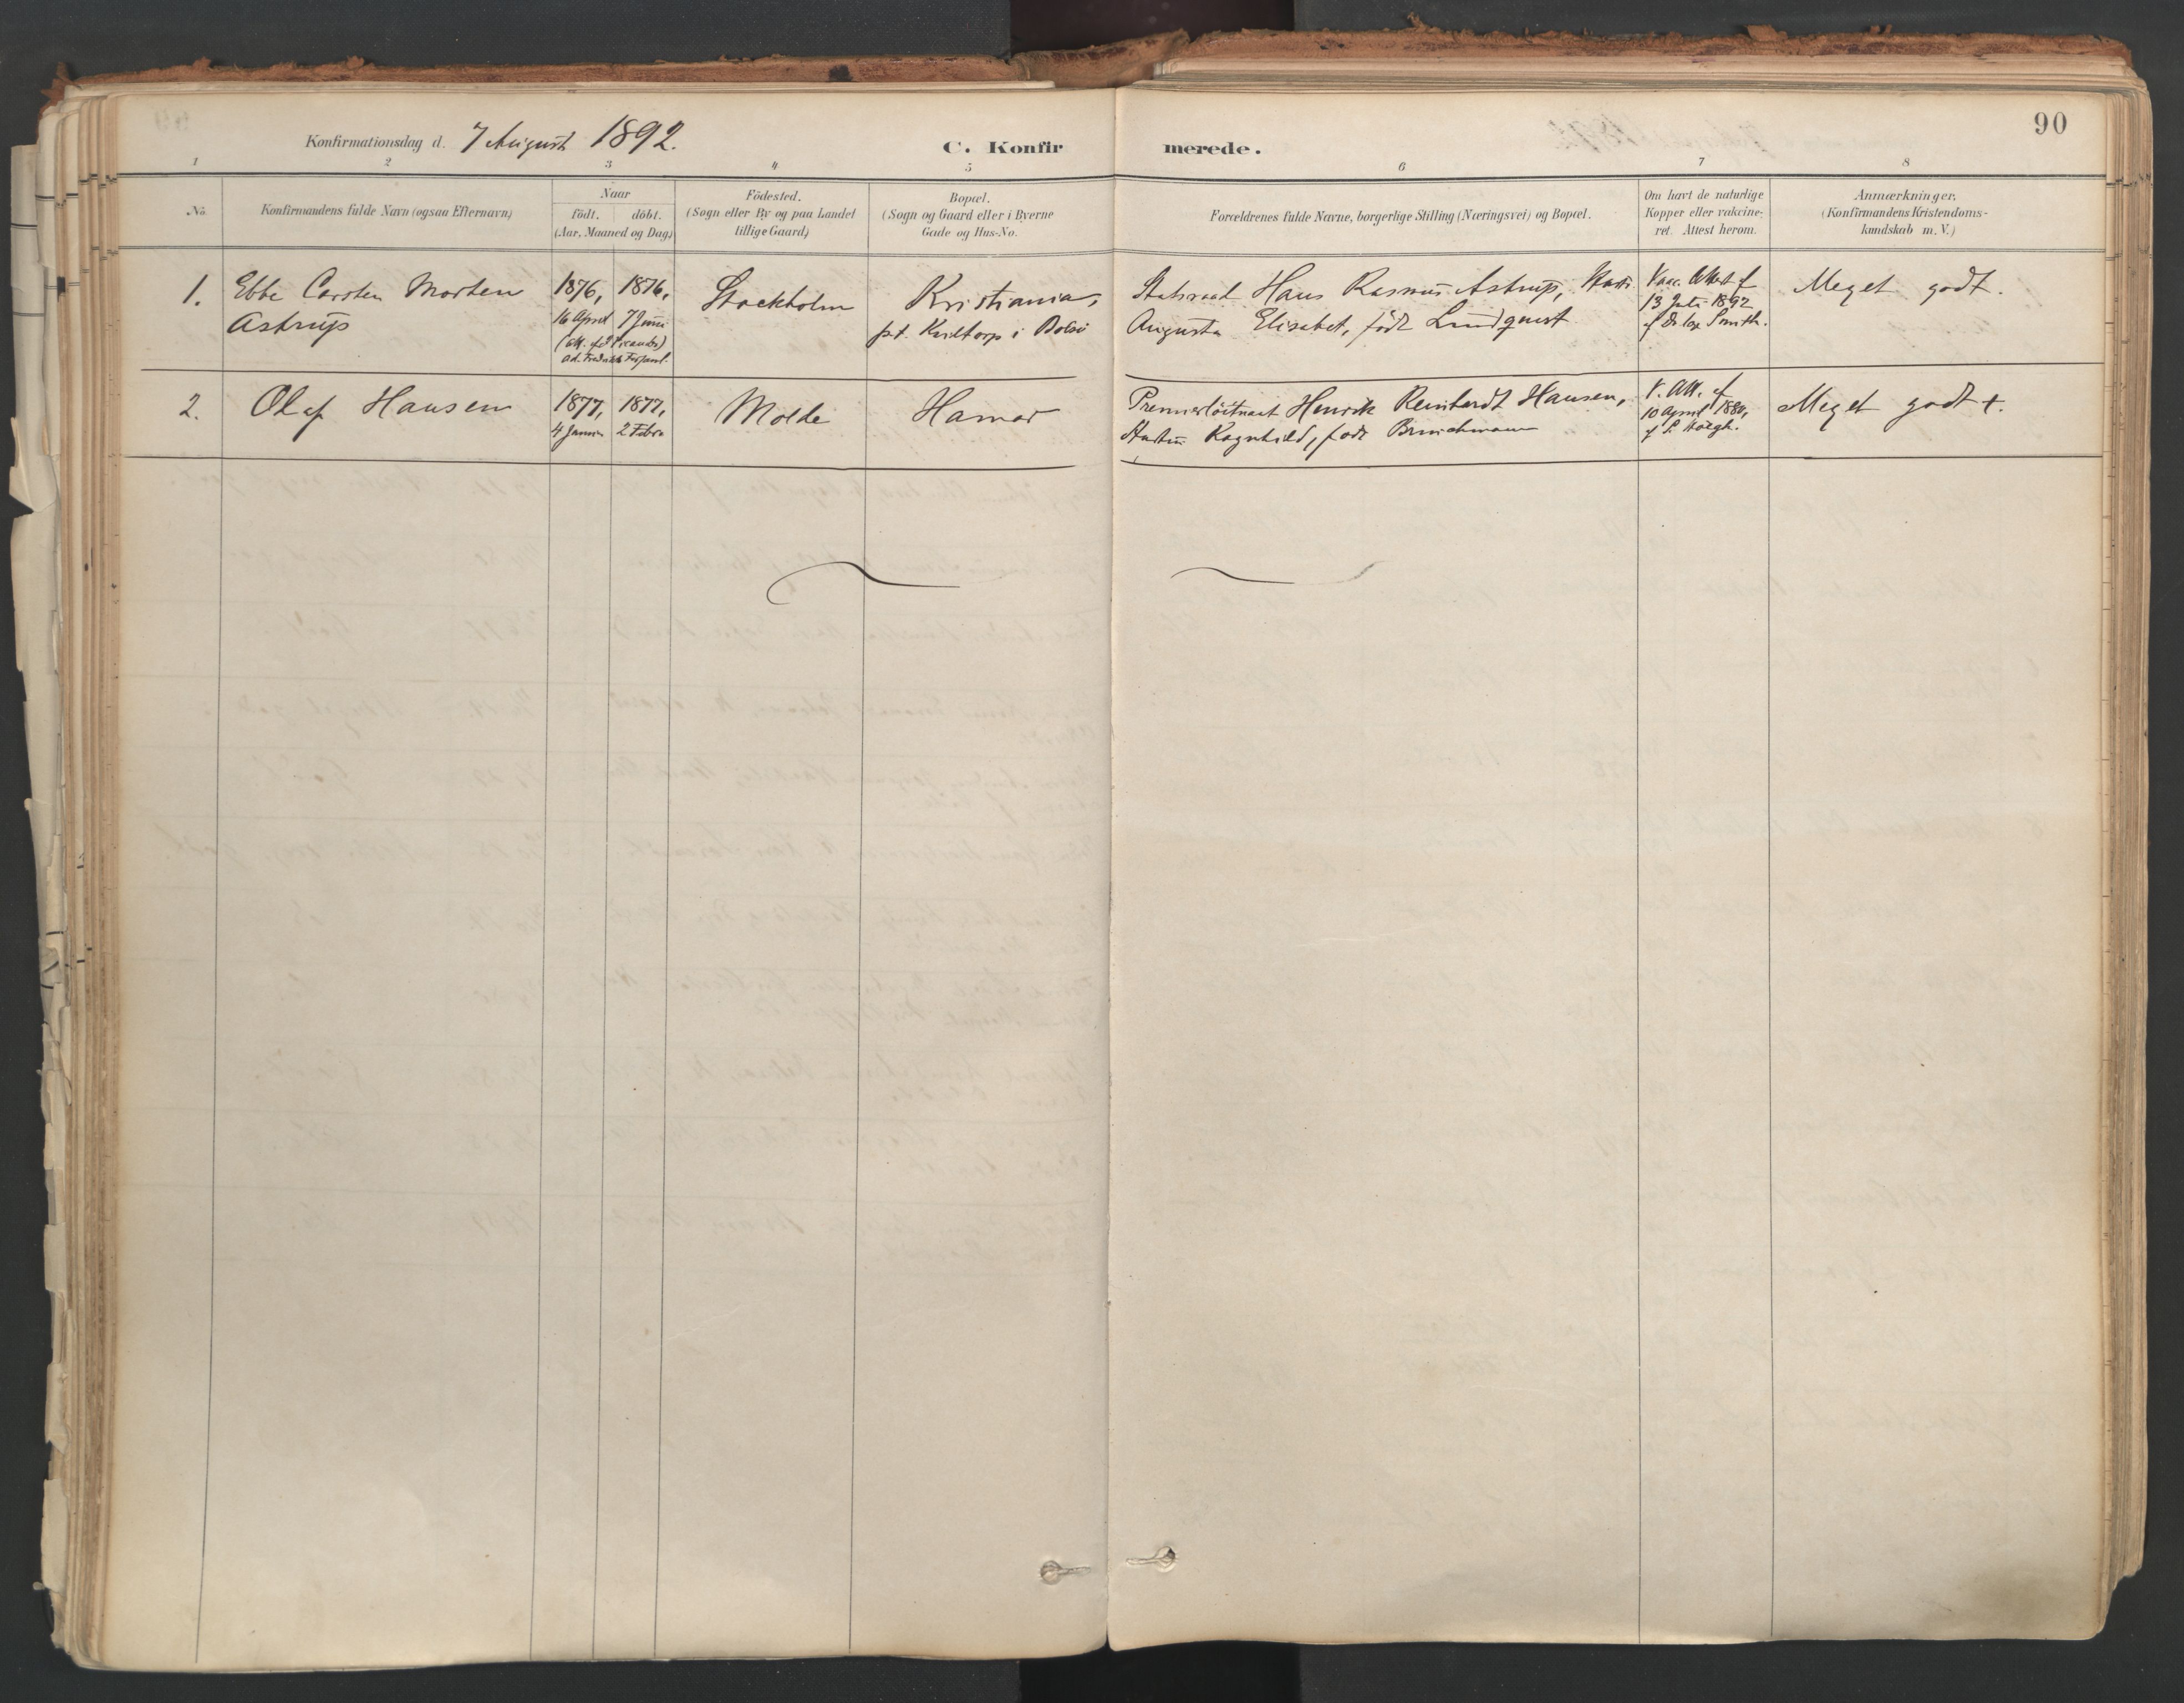 90
Konfirmationsdag d. 7 August 1892.
C. Konfirmerede.
1 2 3 4 5 6 7 8
No.
Konfirmandens fulde Navn (ogsaa Efternavn)
Naar
födt. döbt.
(Aar, Maaned og Dag)
Födested.
(Sogn eller By og paa Landet
tillige Gaard)
Bopæl.
(Sogn og Gaard eller i Byerne
Gade og Hus-No.
Forældrenes fulde Navne, borgerlige Stilling (Næringsvei) og Bopæl.
Om havt de naturlige
Kopper eller vakcine-
ret. Attest herom.
Anmærkninger.
(Konfirmandens Kristendoms-
kundskab m. V.)
1.
Ebbe Carsten Morten
Astrup
1876,
16 April
1876,
7 Juni
Stockholm
Kristiania,
p.t. i Bolsö
Statsraad Hans Rasmus Astrup, Hustru
Augusta Elisabet, födt Lindquist
Vacc. Attest af
13 Juli 1892
Smith.
Meget godt.
2.
Olaf Hansen
1877,
4 Januar
1877,
2 Febr
Molde
Hamar
Premierlöitnant Henrik Reinhardt Hansen,
Hustru Ragnhild, födt
V. Att. af
10 April 1880,
Meget godt +.